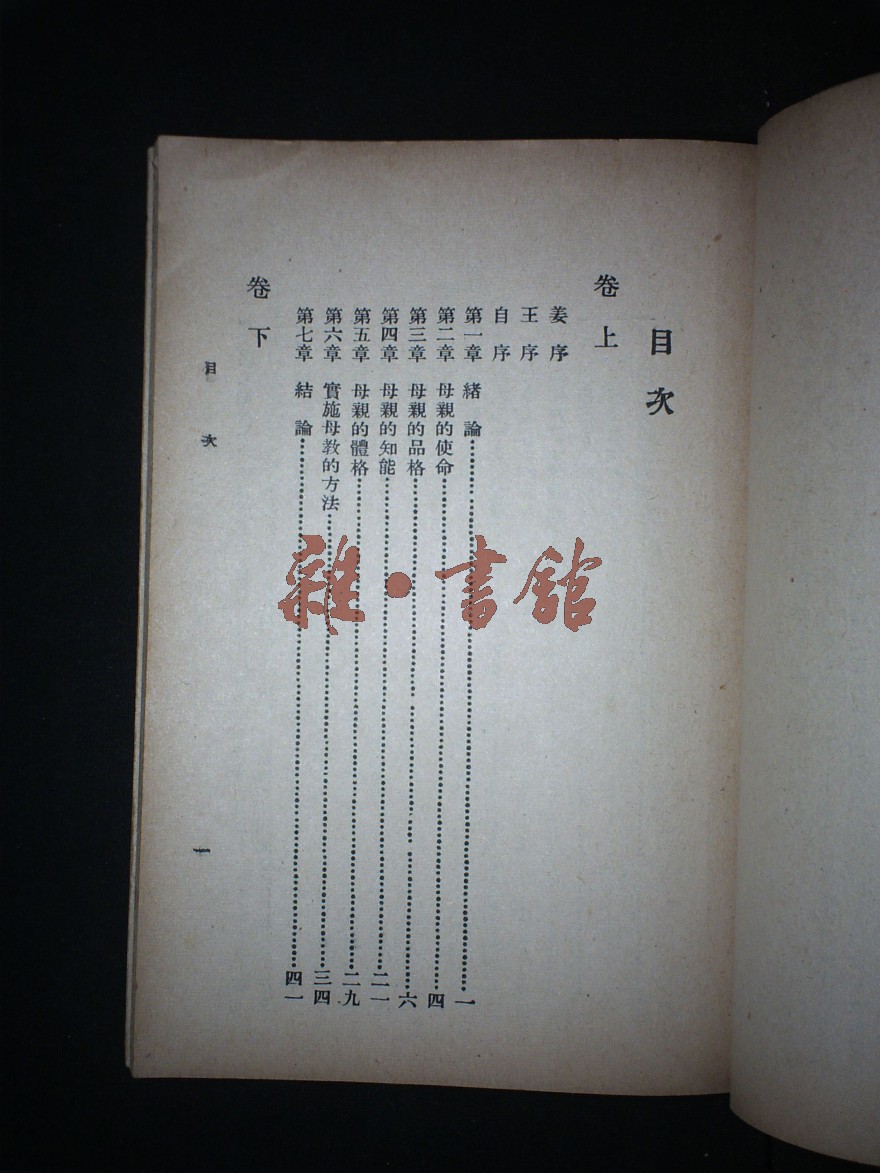 目次
卷上
姜序
王序
自序
第一章 緒論 一
第二章 母親的使命 四
第三章 母親的品格 六
第四章 母親的知能 二一
第五章 母親的體格 二九
第六章 實施母教的方法 三四
第七章 結論 四一
卷下
目次 一
雜·書館